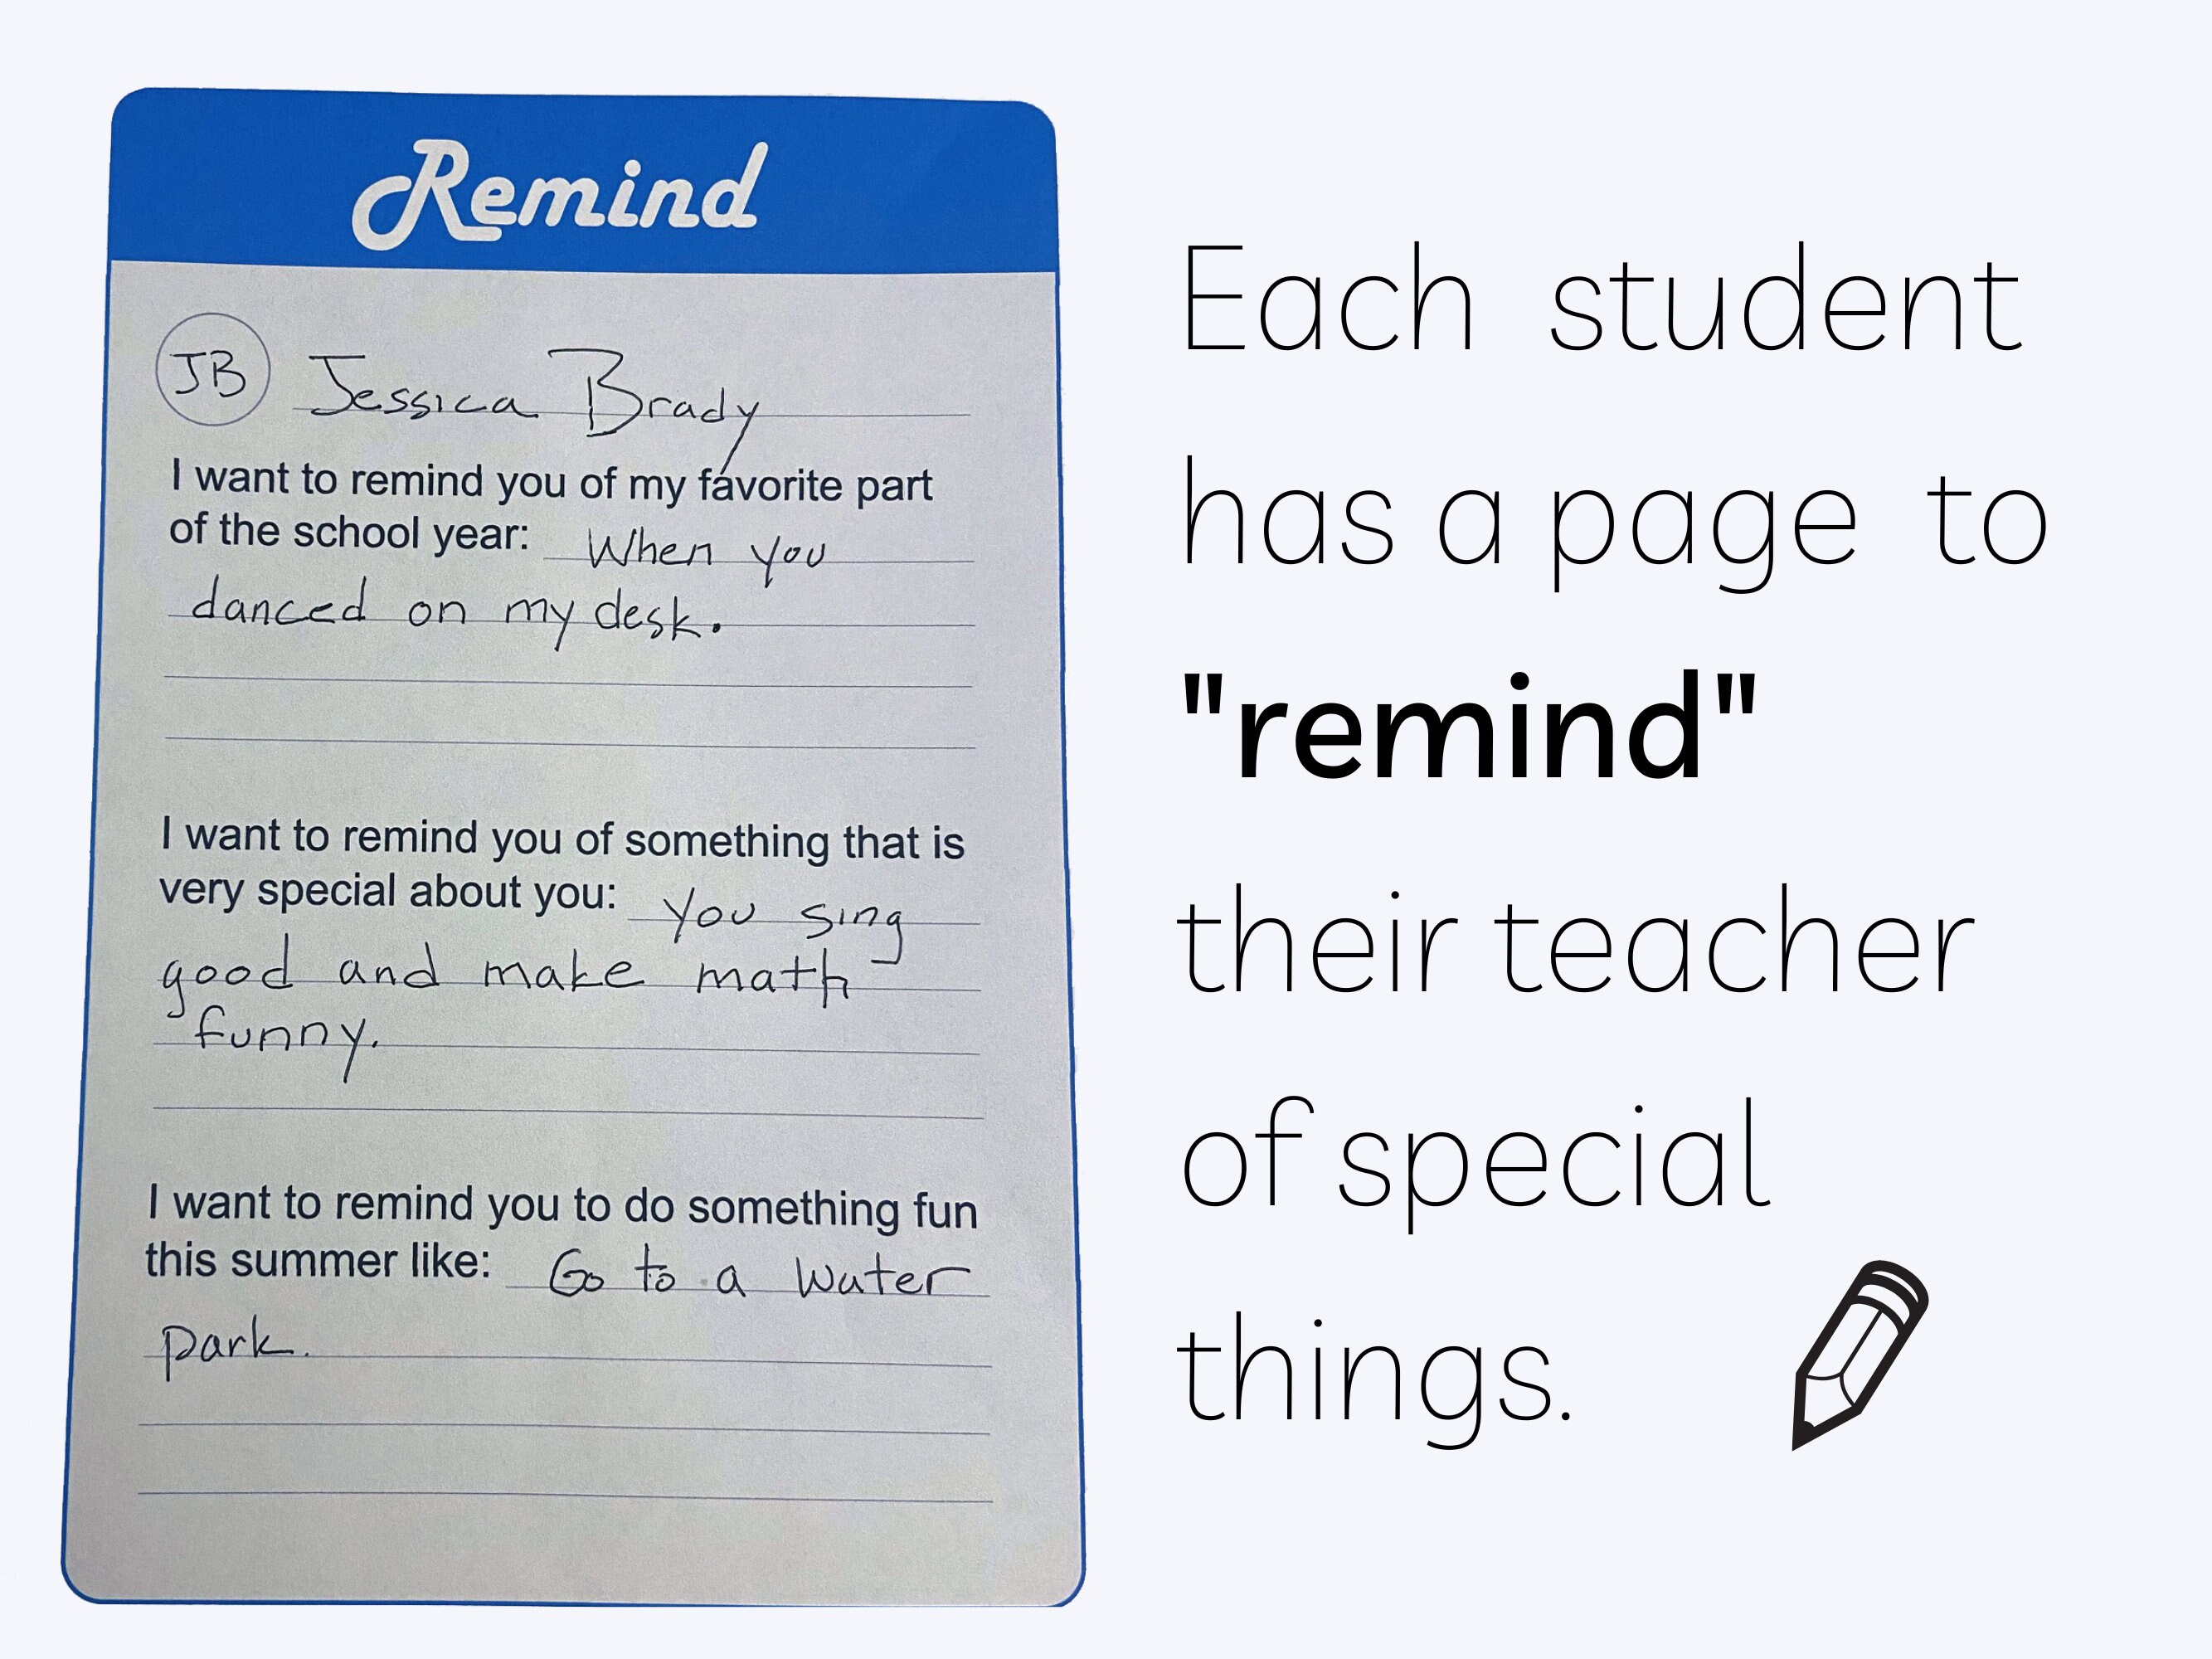 Remind
JB Jessica Brady
I want to remind you of my favorite part
of the school year: When you
danced on my desk.
I want to remind you of something that is
very special about you: You sing
good and make math
funny.
I want to remind you to do something fun
this summer like: Go to a water
park.
Each student
has a page to
"remind"
their teacher
of special
things.